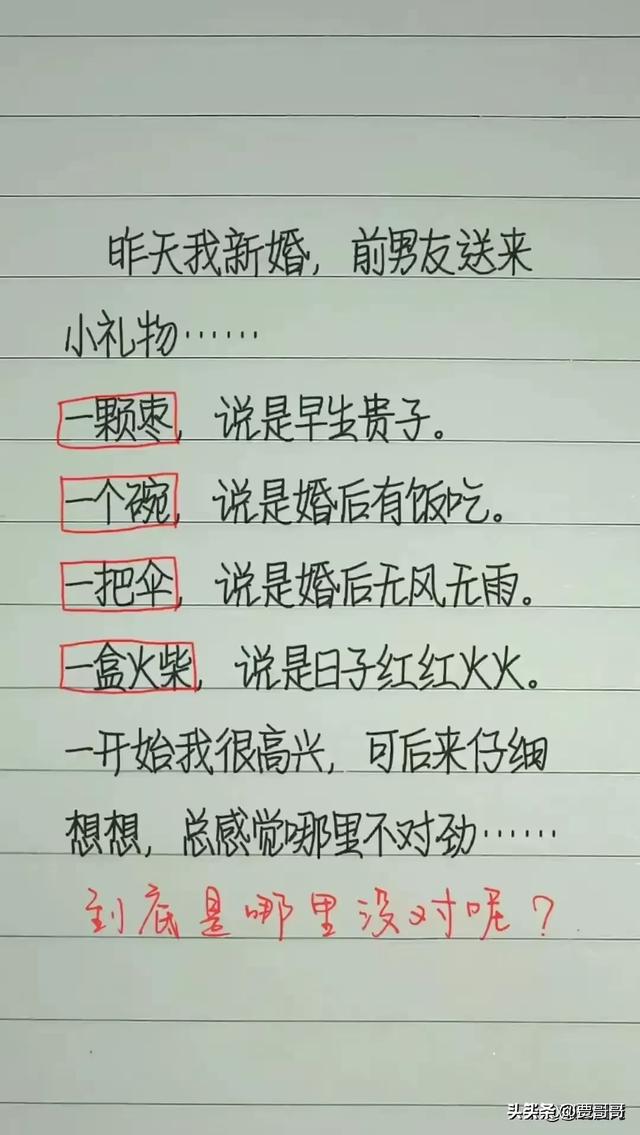 昨天我新婚，前男友送来
小礼物……
一颗枣，说是早生贵子。
一个碗，说是婚后有饭吃。
一把伞，说是婚后无风无雨。
一盒火柴，说是日子红红火火。
一开始我很高兴，可后来仔细
想想，总感觉哪里不对劲……
到底是哪里没对呢？
头条@贾哥哥